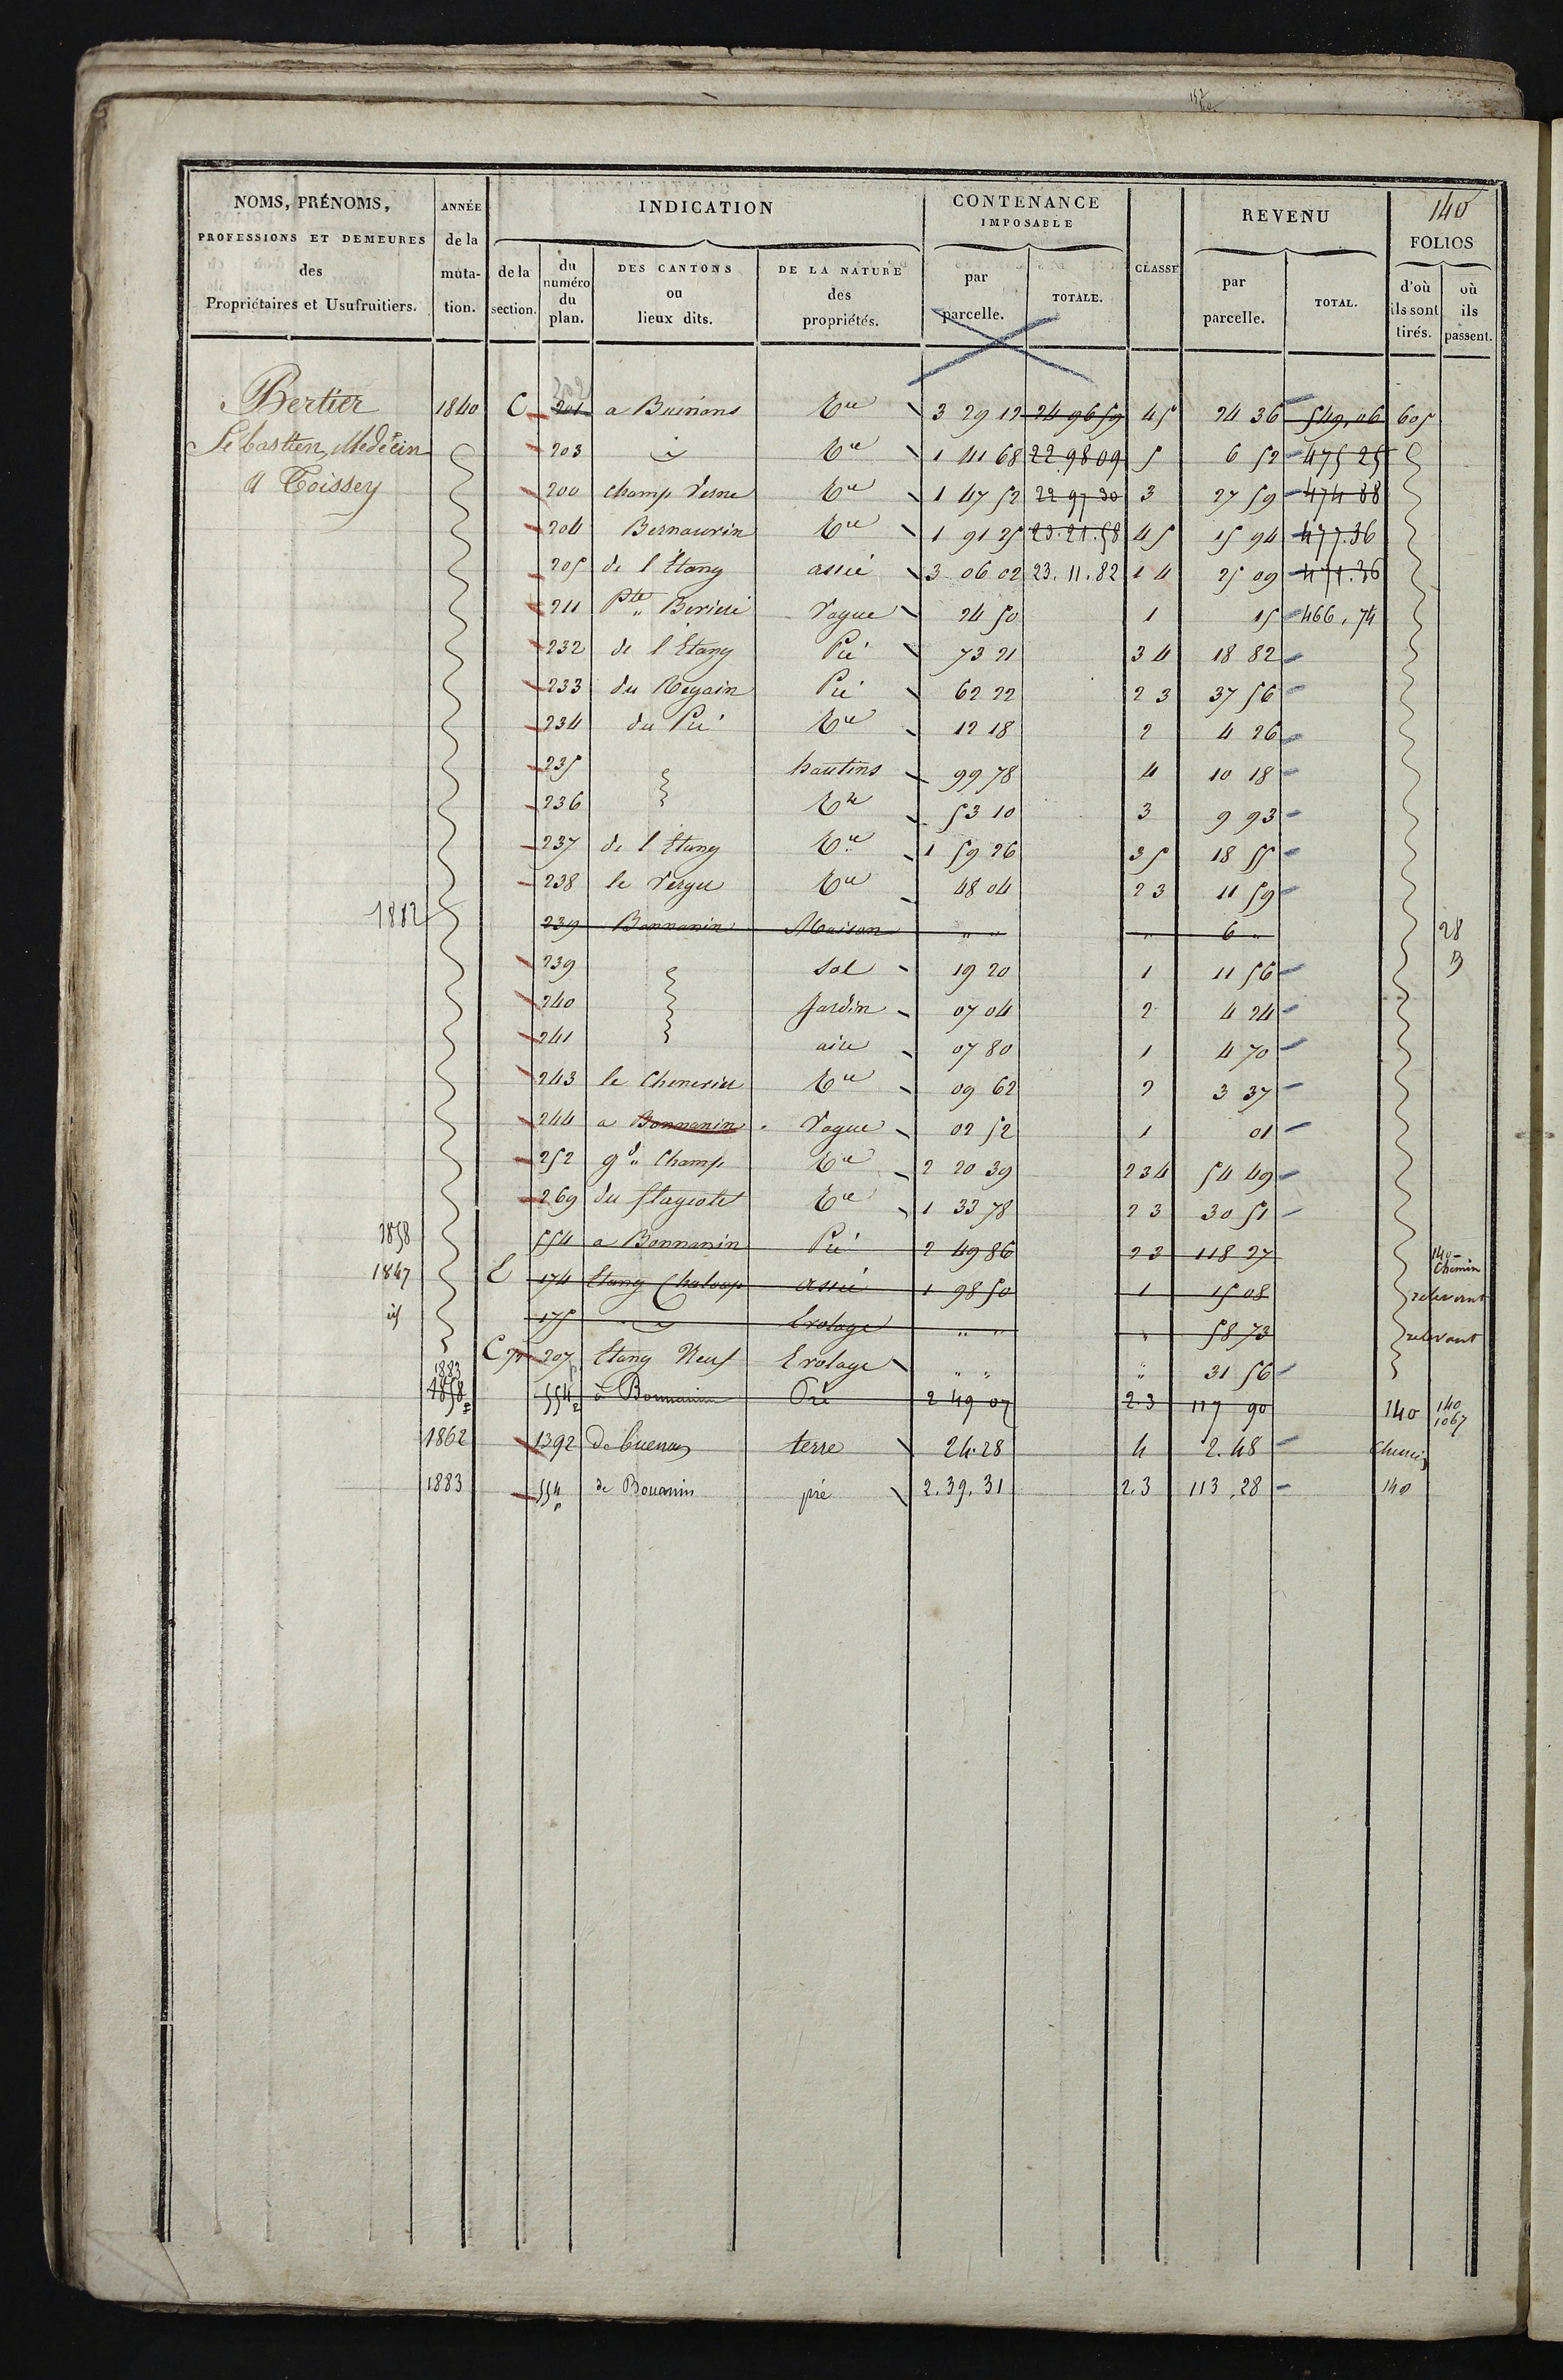 140
NOMS, PRÉNOMS, PROFESSIONS ET DEMEURES des Propriétaires et Usufruitiers.
ANNÉE de la muta- tion.
INDICATION
de la section.
du numéro du plan.
DES CANTONS ou lieux dits.
DE LA NATURE des propriétés.
CONTENANCE IMPOSABLE
par parcelle.
TOTALE.
CLASSE
REVENU
par parcelle.
TOTAL.
FOLIOS
d'où ils sont tirés.
où ils passent.
Bertier 1840 C 201 a Buirions Tre 3 29 12 24 96 59 45 24 36 549,06 605
Sebastien, Medecin 203 Tre 1 41 68 22 98 09 5 6 52 475 25
a Toissey 200 champ Verne Tre 1 47 52 22 97 30 3 27 59 474 88
204 Bernaurin Tre 1 91 25 23.21.58 45 15 94 477.36
205 de l'Etang assié 3 06 02 23.11.82 14 25 09 471.36
211 Pte Vague 24 50 1 15 466,74
232 de l'Etang Pré 73 21 34 18 82
233 du Regain Pré 62 22 23 37 56
234 du Pré Tre 12 18 2 4 26
235 hautins 99 78 4 10 18
236 Tre 53 10 3 9 93
237 de l'Etang Tre 1 59 26 35 18 55
238 le Verger Tre 48 04 23 11 59
1882 239 Bonnanin Maison " " " 6 " 28
239 sol 19 20 1 11 56
240 Jardin 07 04 2 4 24
241 aire 07 80 1 4 70
243 le Chenevier Tre 09 62 2 3 37
244 a Bonnanin Vague 02 52 1 01
252 gd Champ Tre 2 20 39 234 54 49
269 du Tre 1 33 78 23 30 51
1858 554 a Bonnanin Pré 2 49 86 23 118 27 140- Chemin
1847 E 174 Etang Chaloup assié 1 98 50 1 15 08 relevant
id 175 Evolage " " " 58 73 relevant
C 207 Etang Neuf Evolage " " " 31 56
1883
1858 554 à Bonnanin Pré 2 49 07 2.3 117 90 140 140 1067
1862 1392 de terre 24.28 4 2.48 Chemin
1883 554p de Bouanin pré 2.39.31 2.3 113,28 140